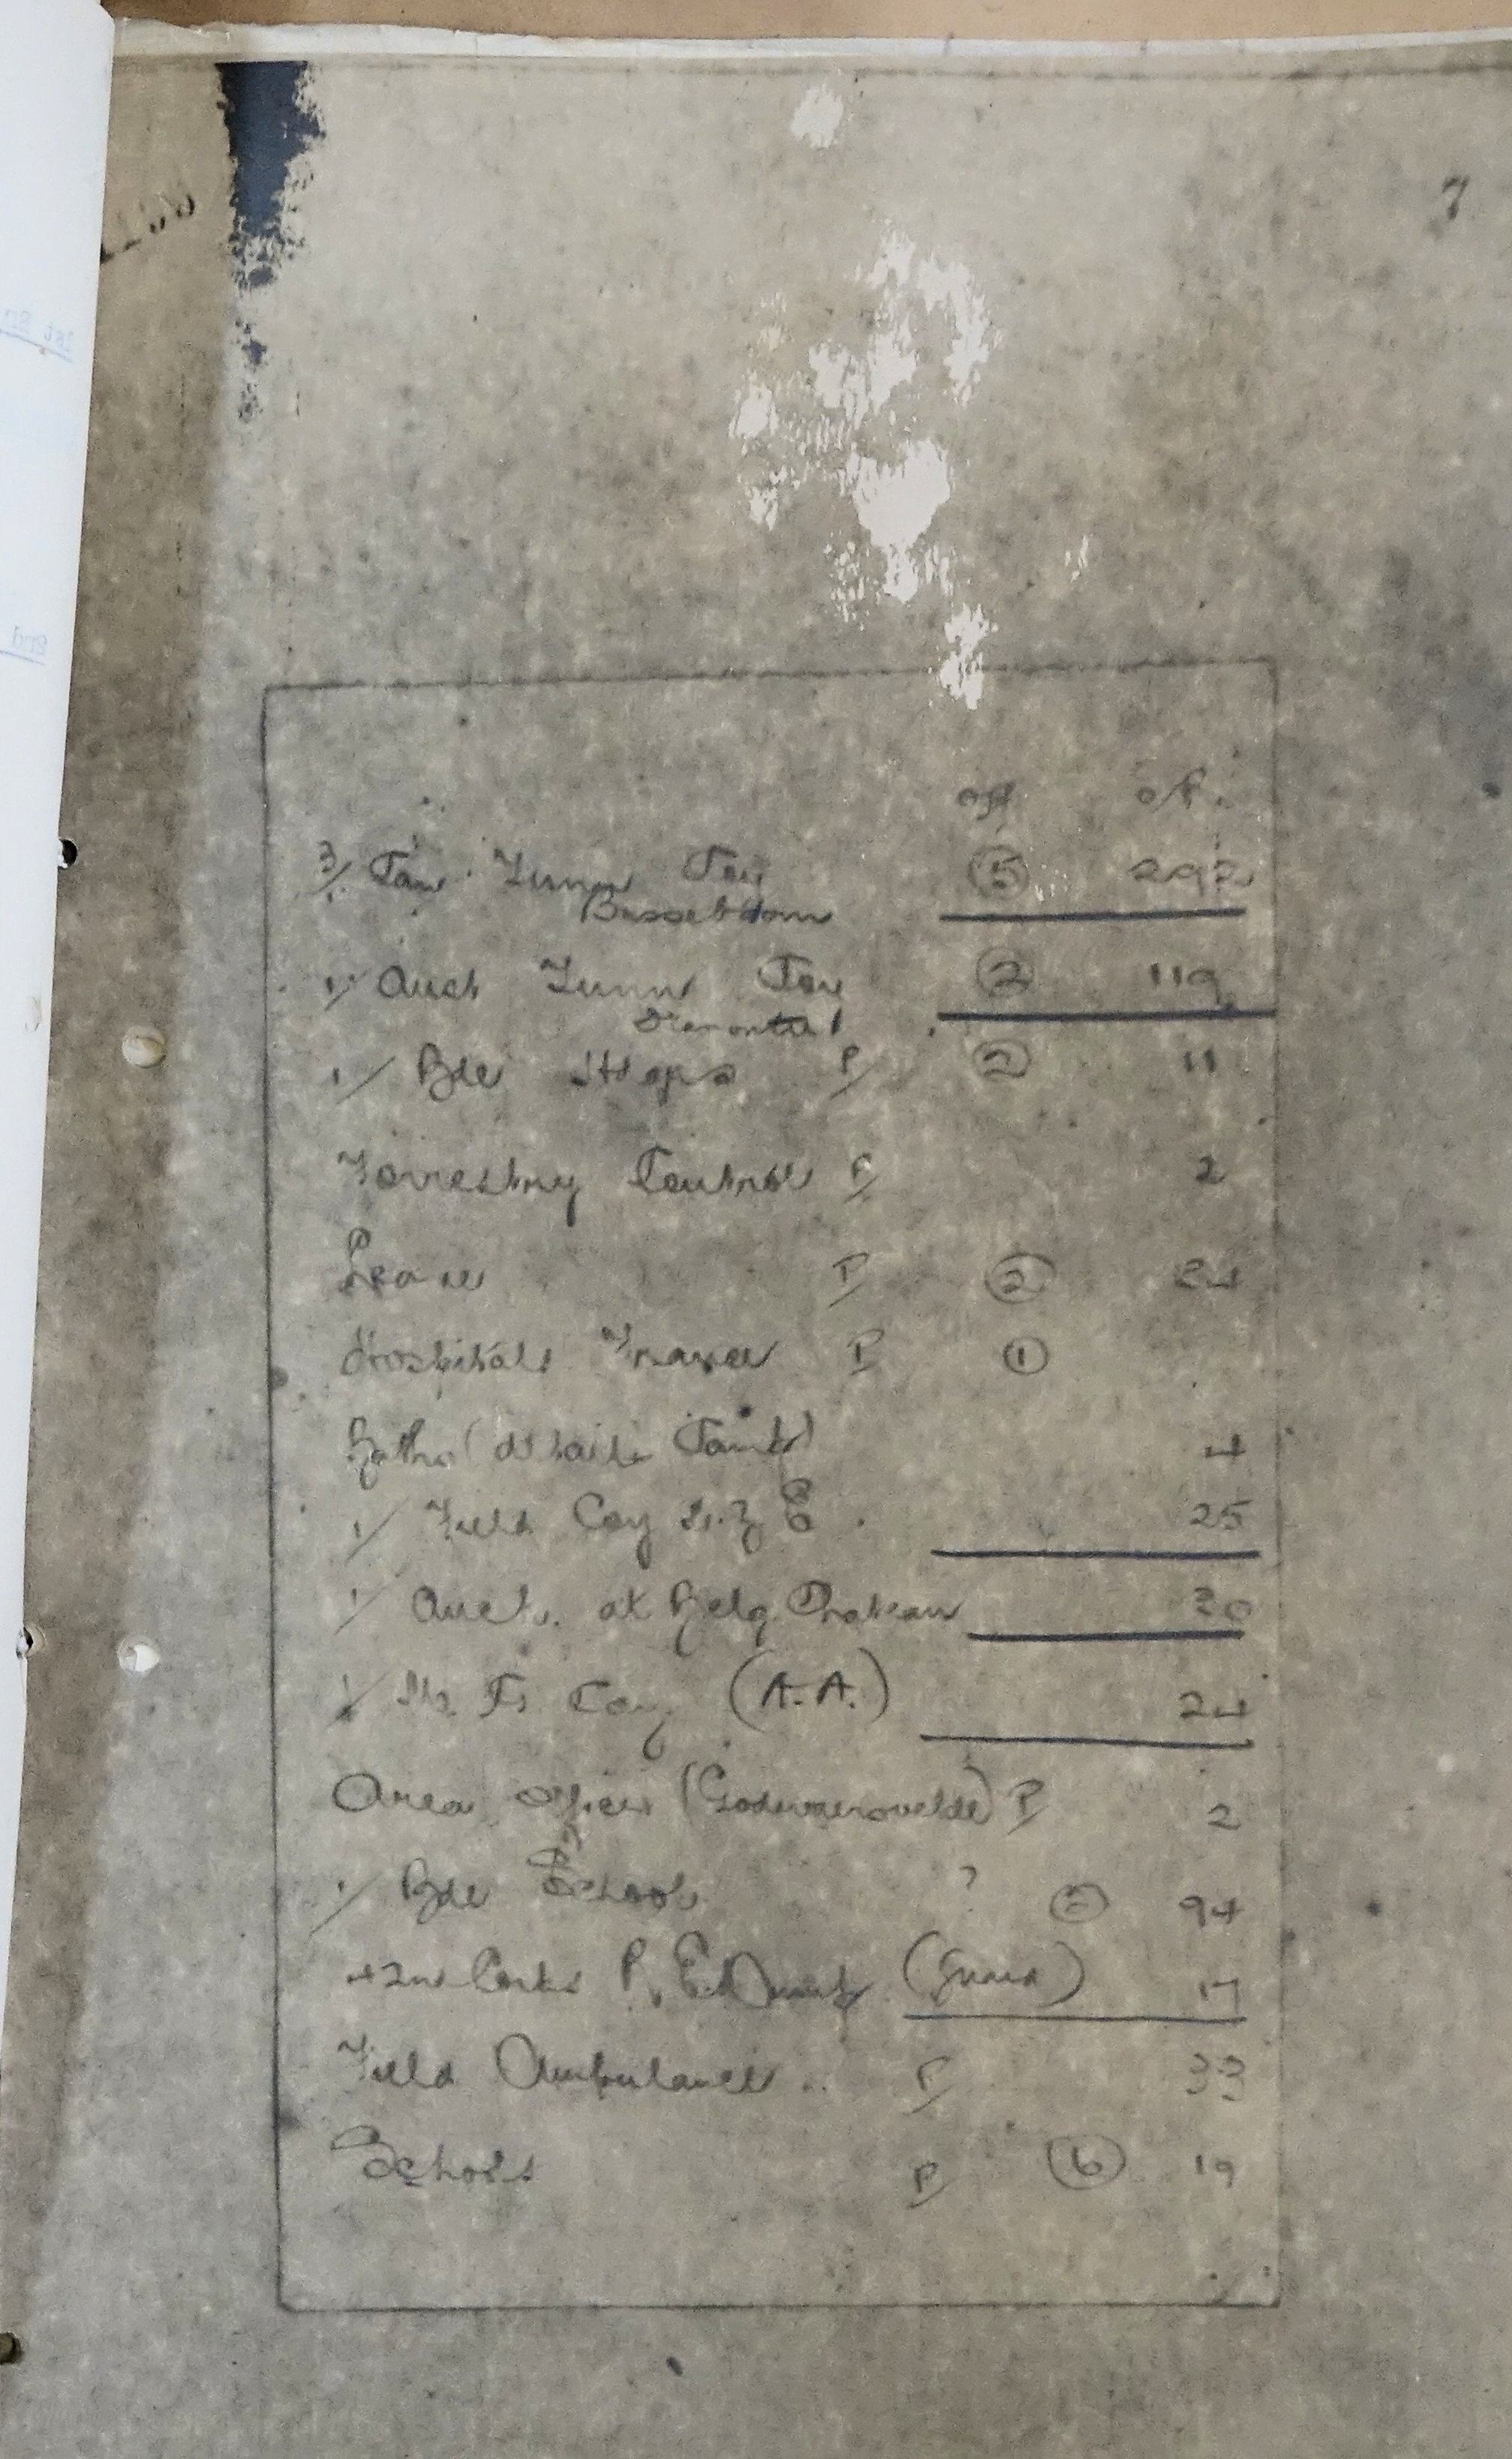 7
off OR.
3/ Can. Tunn Coy ⑤ 292
Busseboom
1/ Aust Tunn Coy ② 119
1/ Bde Hd qrs P/ ② 11
Forrestry Control P/ 2
Leave P ② 24
Hospital France P ①
Baths ( Camp) 4
1/ Field Coy N.Z E. 25
1/ Aust. at Belg Chateau 30
1/ M. G Coy (A.A.) 24
Area Officer (Godewaersvelde) P/ 2
1/ Bde School ? 94
2nd Corps R.E. Dump (Guard) 17
Field Ambulance .. P/ 33
School P/ ⑥ 19